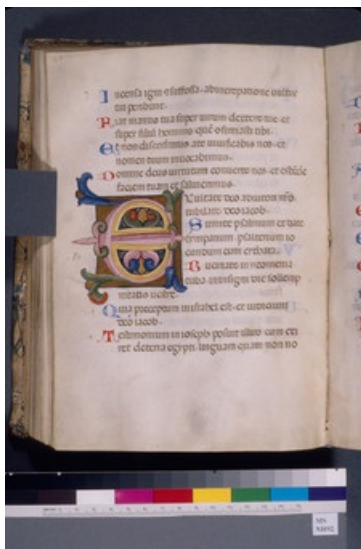 Incensa igni et suffossa. ab increpatione vultus
tui peribunt.
Fiat manus tua super virum dextere tue et
super filiū hominis quē confirmasti tibi.
Et non discedimus a te vivificabis nos et
nomen tuum invocabimus.
Domine deus virtutum converte nos et ostende
faciem tuam et salvi erimus.
Exultate deo adiutori nr̄o
iubilate deo iacob.
Sumite psalmum et date
timpanum psalterium io
cundum cum cythara.
Bucinate in neomenia
tuba in insigni die sollemp
nitatis vestre.
Quia preceptum in israhel est. et iudicium
deo iacob.
Testimonium in ioseph posuit illud cum exi
ret de terra egypti. linguam quam non no
MS